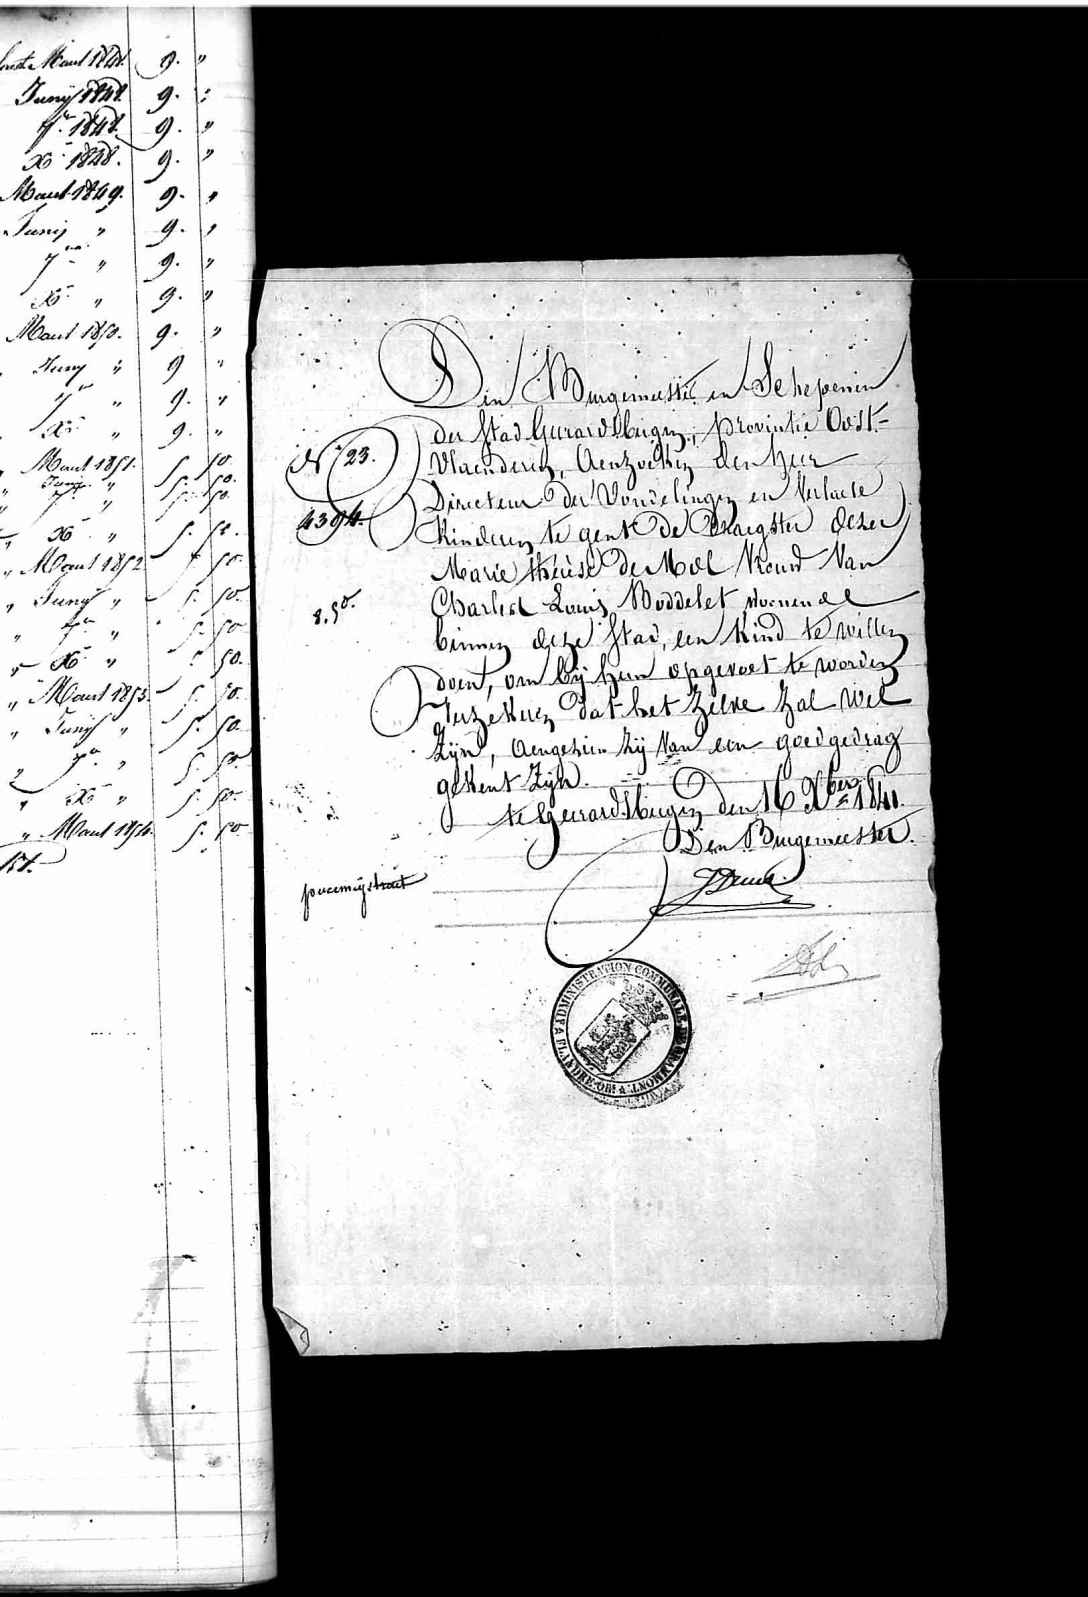 Maert 1848. 9. "
Junij 1848. 9. "
7.r 1848. 9. "
Xr 1848. 9. "
Maert 1849. 9. "
Junij " 9. "
7re " 9. "
Xr " 9. "
Maert 1850. 9. "
Juny " 9 "
7r " 9. "
Xr " 9. "
" Maert 1851. 5. 50.
" Junij " 5. 50.
" 7r " 5. 50.
" Xr " 5. 50.
" Maert 1852 5. 50.
" Junij " 5. 50.
" 7r " 5. 50
" Xr " 5. 50.
" Maert 1853. 5. 50.
" Junij " 5. 50.
" 7r " 5. 50.
" Xr " 5. 50.
" Maert 1854. 5. 50
Den Burgemeester en Schepenen
der Stad Geeraardsbergen, provintie Oost-
N° 23.
Vlaenderen, Aenzoeken den heer
Directeur der Vondelingen en Verlaete
4394.
Kinderen te gent de Draegster dezer
Marie thérèse De Mol Vrouw Van
8.50.
Charles Louis Boddelet woenende
binnen deze Stad, een Kind te willen
doen, om bij hun opgevoet te worden
Verzekeren dat het zelve zal wel
zijn, aengezien zij van een goed gedrag
gekent zijn.
te Geeraardsbergen den 16 Xber 1841.
Den Burgemeester.
ADMINISTRATION COMMUNALE DE GRAMMONT. ★ FLANDRE-OR: